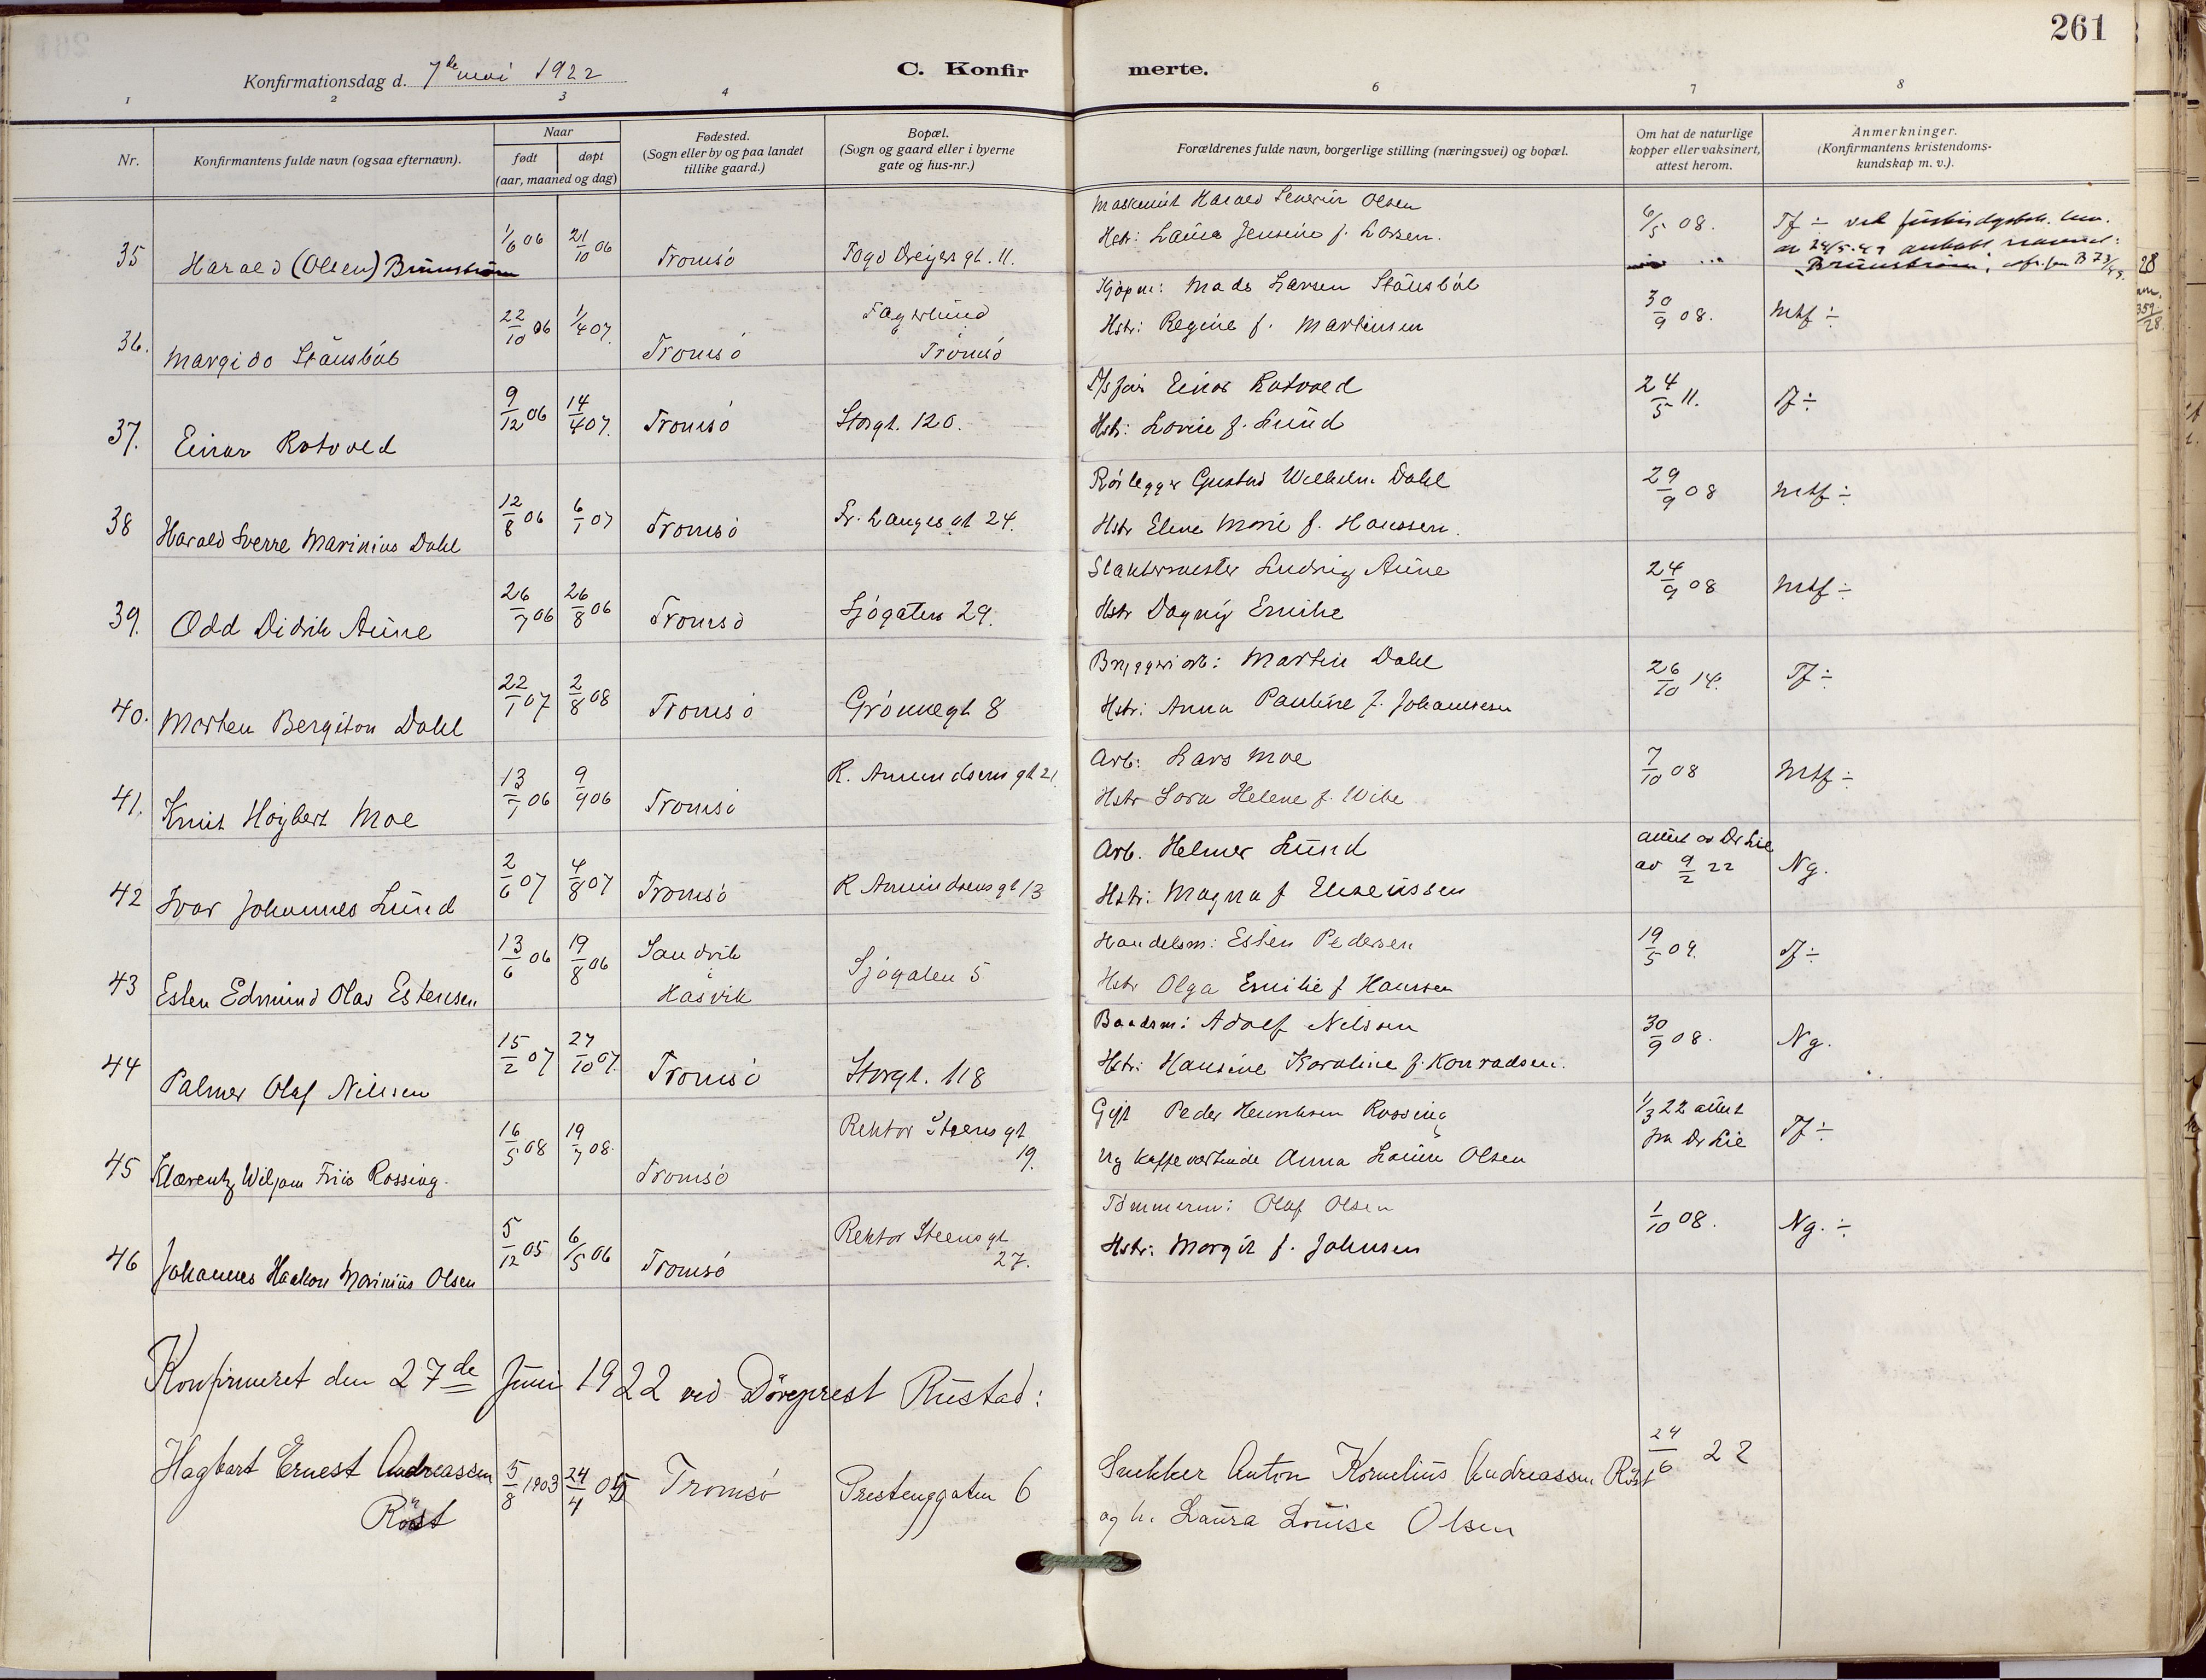 261
Konfirmationsdag d. 7de mai 1922
C. Konfirmerte.
1 2 3 4 6 7 8
Nr.
Konfirmantens fulde navn (ogsaa efternavn).
Naar
født døpt
(aar, maaned og dag)
Fødested.
(Sogn eller by og paa landet
tillike gaard.)
Bopæl.
(Sogn og gaard eller i byerne
gate og hus-nr.)
Forældrenes fulde navn, borgerlige stilling (næringsvei) og bopæl.
Om hat de naturlige
kopper eller vaksinert,
attest herom.
Anmerkninger.
(Konfirmantens kristendoms-
kundskap m. v.).
35 Harald (Olsen) Brunstrøm 1/6 06 21/10 06 Tromsö Fogd Dreiers gt. 11.
Maskinist Harald Severin Olsen
Hstr: Laura Jensine f. Larsen.
6/5 08. Tf ÷
Brunstrøm
36. Margido Stausböl 22/10 06 1/4 07. Tromsö Fagerlund
Tromsö
Kjøpm: Mads Larsen Stausböl
Hstr: Regine f. Martinsen
30/9 08. Mtf ÷
37. Einar Rotvold 9/12 06 14/4 07. Tromsö Storgt. 120.
Einar Rotvold
Hstr: Lovise f. Lund
24/5 11. Tf ÷
38 Harald Sverre Marinius Dahl 12/8 06 6/1 07 Tromsö Fr. Langes gt 24.
Rörlegger Gustav Wilhelm Dahl
Hstr Elene Marie f. Hanssen.
29/9 08 Mtf ÷
39. Odd Didrik Aune 26/7 06 26/8 06 Tromsö Sjögaten 29.
Slaktermester Ludvig Aune
Hstr Dagny Emilie
24/9 08 Mtf ÷
40. Morten Bergiton Dahl 22/1 07 2/8 08 Tromsö Grönnegt 8
Bryggeriarb: Martin Dahl
Hstr: Anna Pauline f. Johannesen
26/10 14. Tf ÷
41. Knut Höybert Moe 13/7 06 9/9 06 Tromsö R. Amundsens gt 21.
Arb: Lars Moe
Hstr Lora Helene f. Wibe
7/10 08 Mtf ÷
42 Ivar Johannes Lund 2/6 07 4/8 07 Tromsö R Amundsens gt 13
Arb. Helmer Lund
Hstr: Magna f Eliseussen
attest av Dr Lie
av 9/2 22 Ng.
43 Esten Edmund Olav Estensen 13/6 06 19/8 06 Sandvik
i
Hasvik
Sjögaten 5
Handelsm: Esten Pedersen
Hstr Olga Emilie f Hanssen
19/5 09. Tf ÷
44 Palmer Olaf Nilssen 15/2 07 27/10 07. Tromsö Storgt. 118
Baadsm: Adolf Nilssen
Hstr: Hansine Karoline f. Konradsen.
30/9 08. Ng.
45 Klarentz Wiljam Friis Rossing. 16/5 08 19/7 08. Tromsö Rektor Steens gt
19.
Gift Peder Henriksen Rossing
Ug kaffevertinde Anna Louise Olsen
1/3 22 attest
fra Dr Lie Tf ÷
46 Johannes Haakon Marinius Olsen 5/12 05 6/5 06 Tromsö Rektor Steens gt
27.
Tömmerm: Olaf Olsen
Hstr: Margit f. Johnsen
1/10 08. Ng. ÷
Konfirmeret den 27de Juni 1922 ved Döveprest Rustad:
Hagbart Ernest Andreassen
Röst
5/8 1903 24/4 05 Tromsö Prestenggaten 6
Snekker Anton Kornelius Andreassen Röst
og h. Laura Louise Olsen
24/6 22